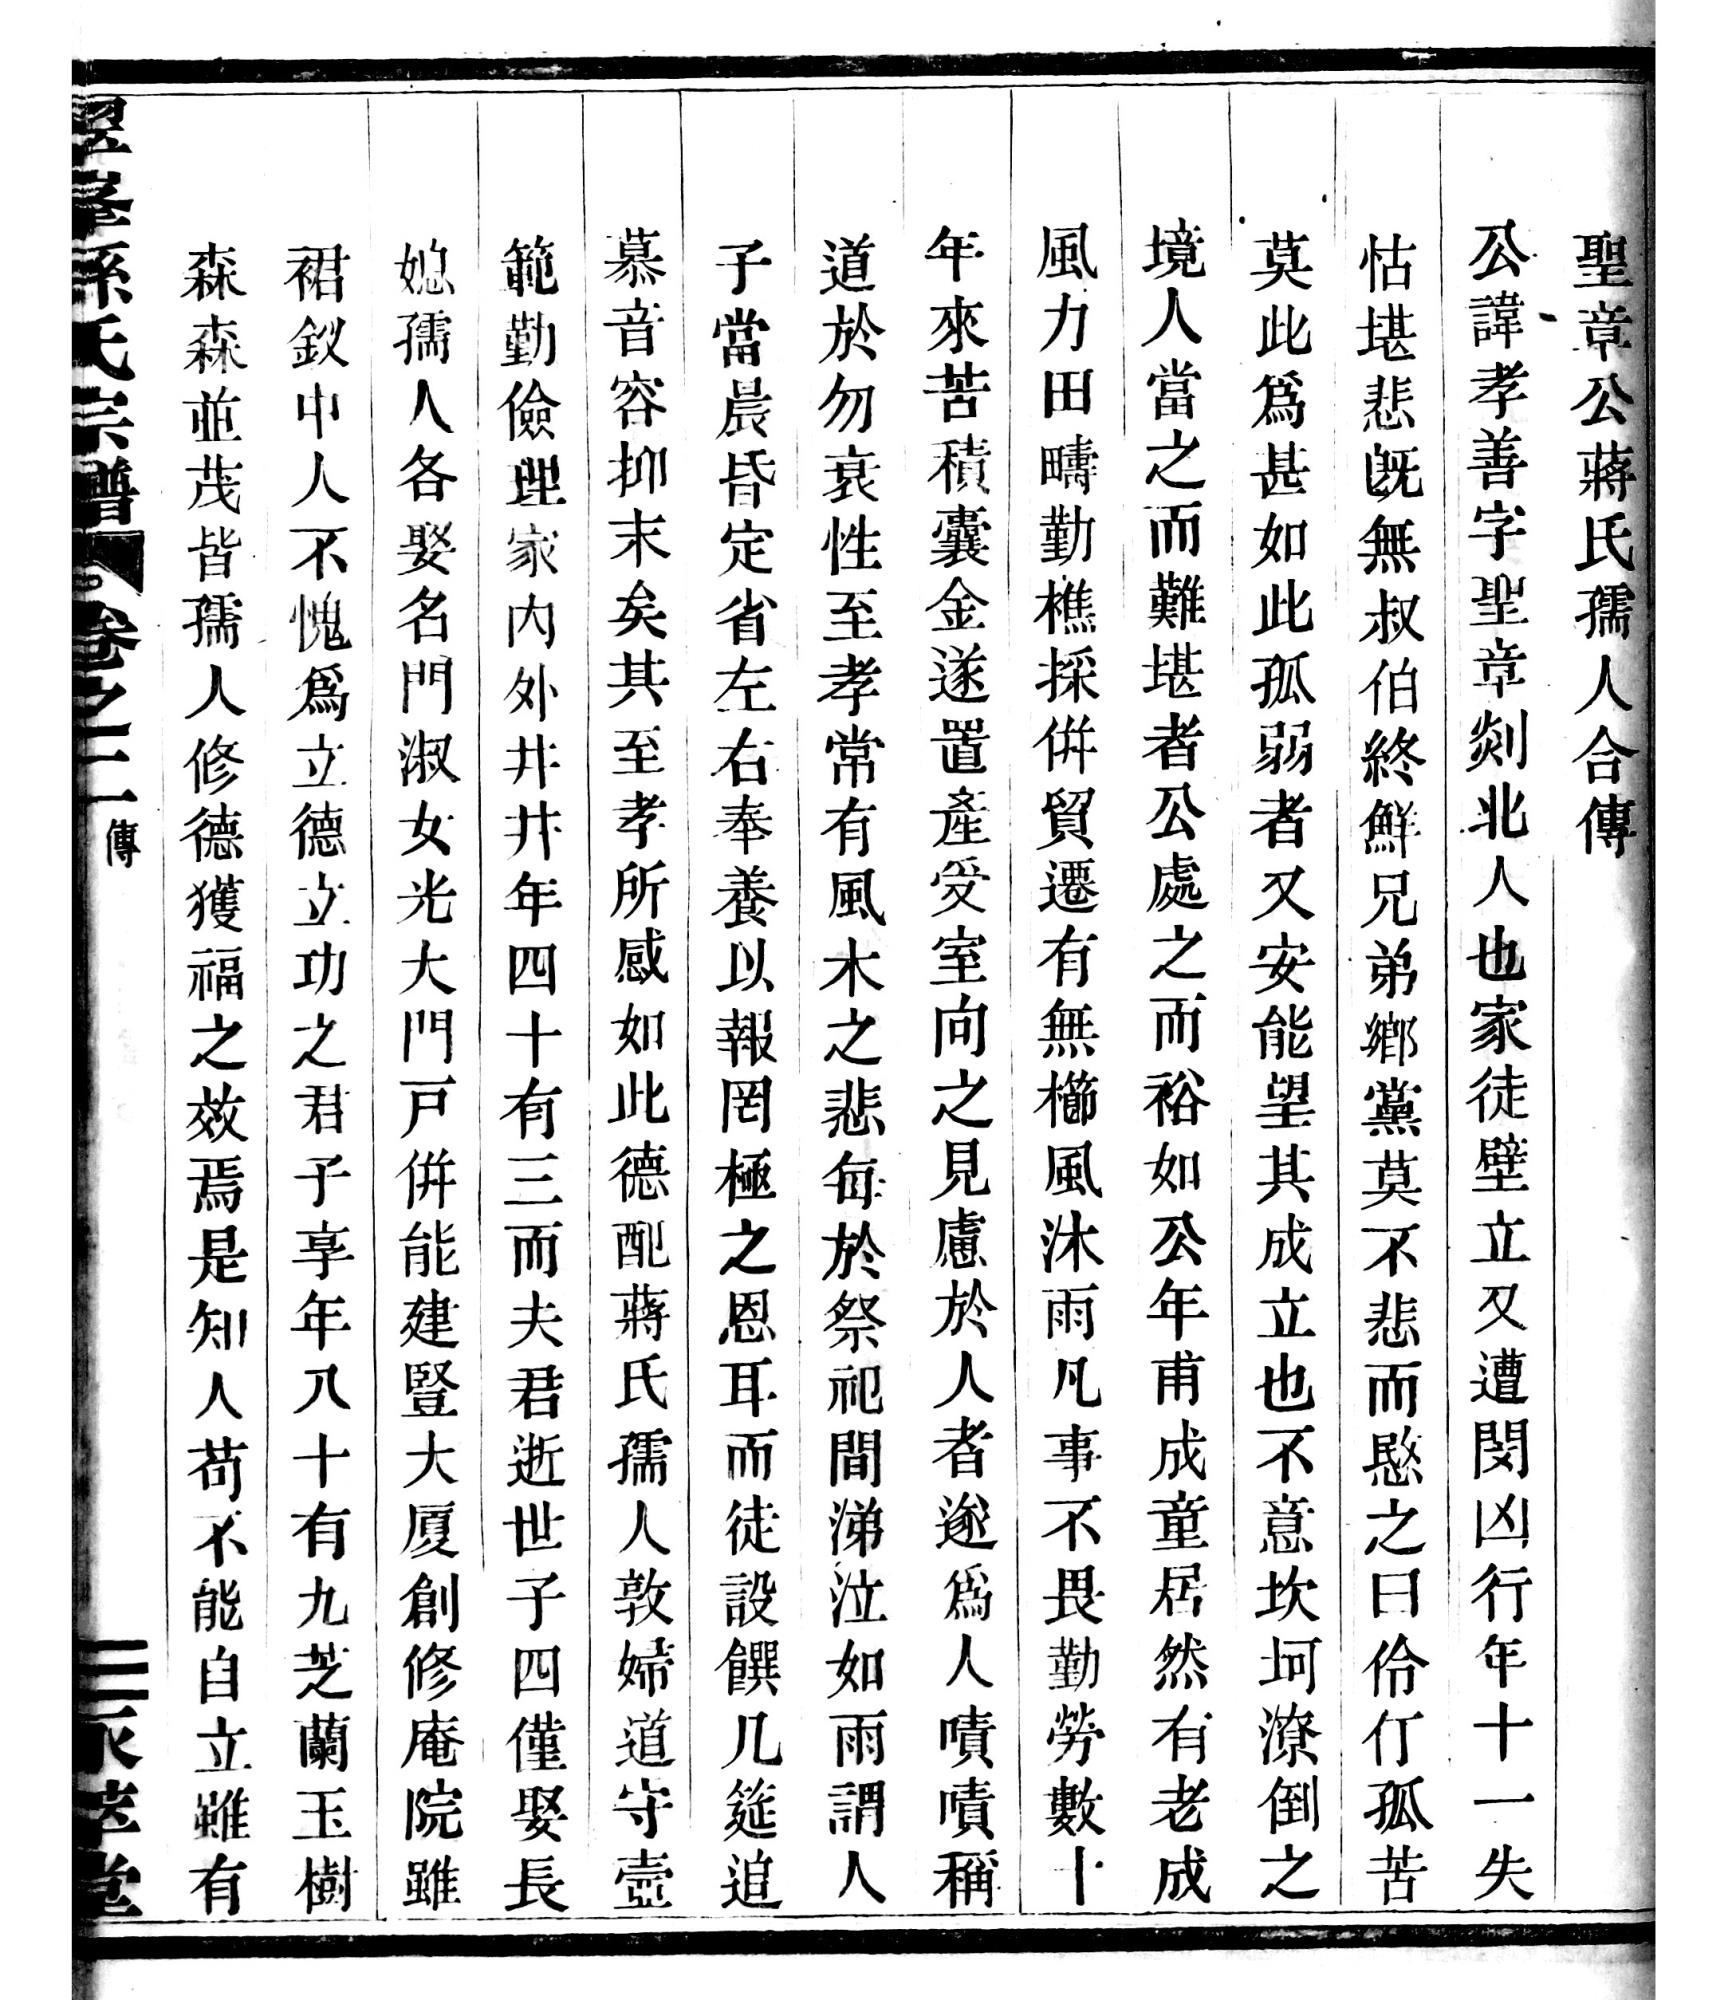 聖章公蔣氏孺人合傳
公諱孝善字聖章剡北人也家徒壁立又遭閔凶行年十一失
怙堪悲旣無叔伯終鮮兄弟鄉黨莫不悲而愍之曰伶仃孤苦
莫此爲甚如此孤弱者又安能望其成立也不意坎坷潦倒之
境人當之而難堪者公處之而裕如公年甫成童居然有老成
風力田疇勤樵採併貿遷有無櫛風沐雨凡事不畏勤勞數十
年來苦積囊金遂置產受室向之見慮於人者遂爲人嘖嘖稱
道於勿衰性至孝常有風木之悲每於祭祀間涕泣如雨謂人
子當晨昏定省左右奉養以報罔極之恩耳而徒設饌几筵追
慕音容抑末矣其至孝所感如此德配蔣氏孺人敦婦道守壼
範勤儉理家內外井井年四十有三而夫君逝世子四僅娶長
媳孺人各娶名門淑女光大門戸併能建豎大厦創修庵院雖
裙釵中人不愧爲立德立功之君子享年八十有九芝蘭玉樹
森森並茂皆孺人修德獲福之效焉是知人苟不能自立雖有
孫氏宗譜 卷之二 傳 二 永萃堂